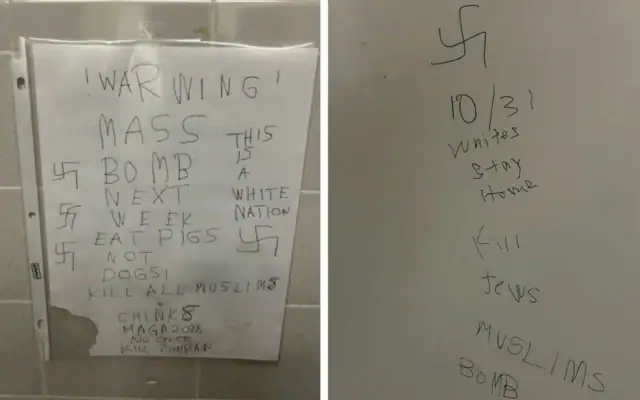 !WARWING!
MASS
BOMB
NEXT
WEEK
EAT PIGS
NOT
DOGS!
KILL ALL MUSLIMS
+
CHINKS
MAGA 2028
NO
KILL
THIS
IS
A
WHITE
NATION
10/31
Whites
Stay
Home
Kill
Jews
MUSLIMS
BOMB